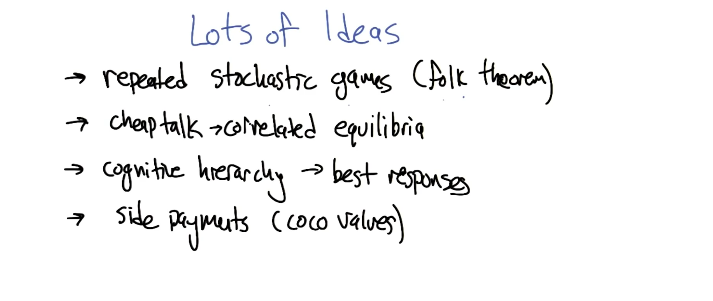 Lots of Ideas
→ repeated stochastic games (folk theorem)
→ cheap talk → correlated equilibria
→ cognitive hierarchy → best responses
→ side payments (coco values)